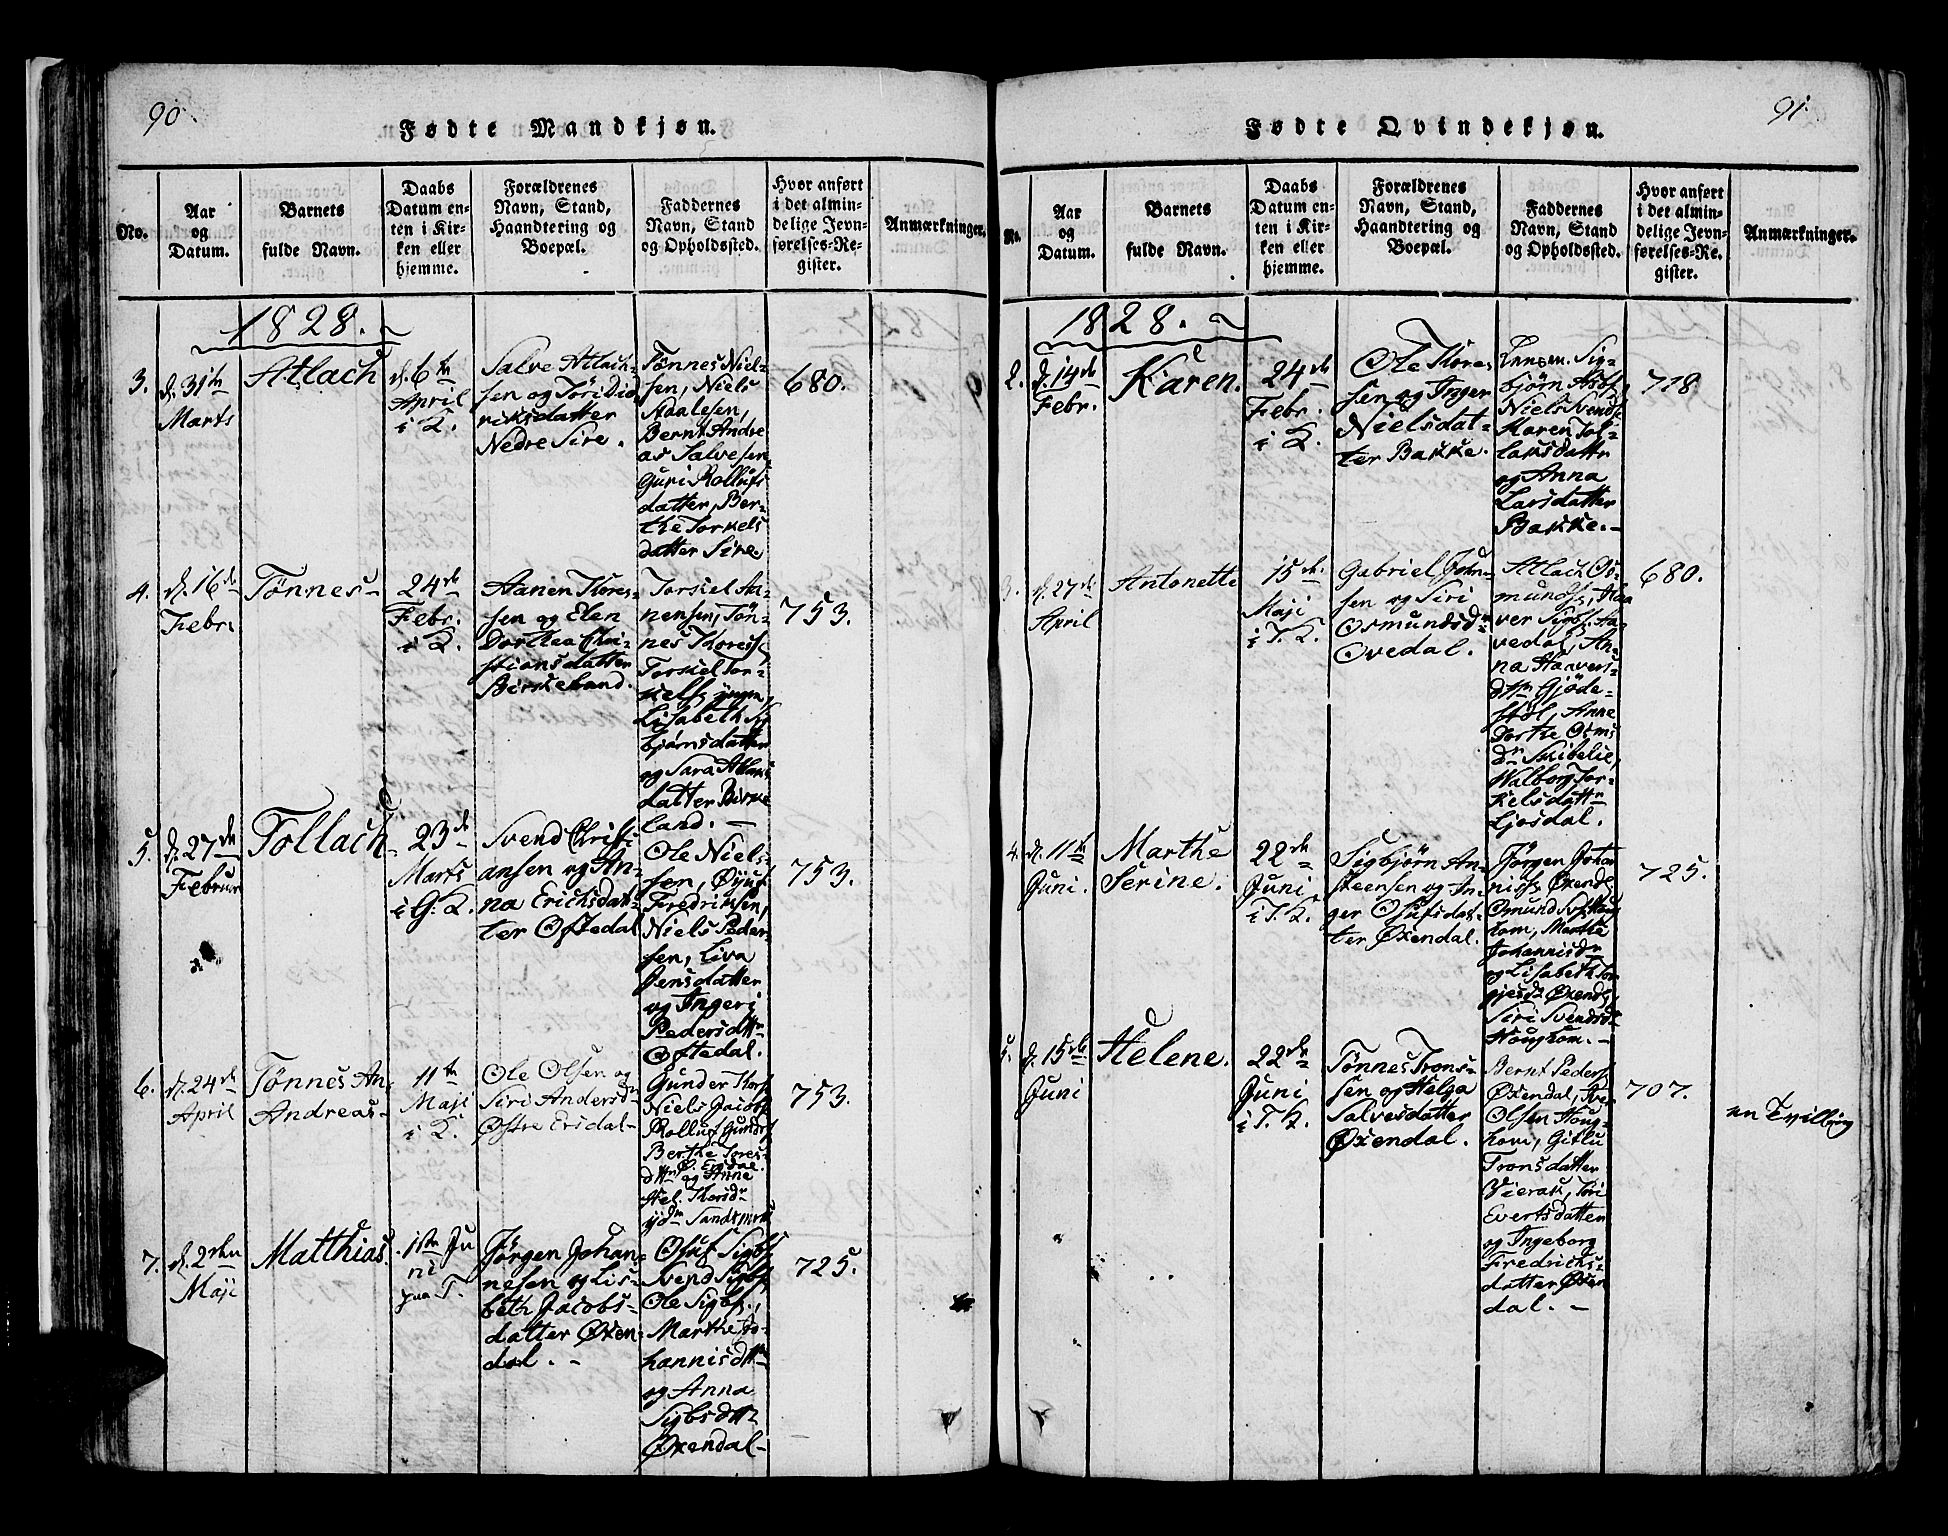 90.
Fødte Mandkjøn.
No.
Aar
og
Datum.
Barnets
fulde Navn.
Daabs
Datum en-
ten i Kir-
ken eller
hjemme.
Forældrenes
Navn, Stand,
Haandtering og
Boepæl.
Faddernes
Navn, Stand
og Opholdssted.
Hvor anført
i det almin-
delige Jevn-
førelses-Re-
gister.
Anmærkninger.
1828.
3.
d. 31te
Marts
Atlach
d. 6te
April
i K.
Salve Atlach-
sen og Töri Did
riksdatter
Nedre Sire.
Tønnes Niel-
sen, Niels
Adalesen,
Bernt Andre
as Salvesen
Guri Rollufs
datter, Ber-
the Torkels
datter Sire.
680.
4.
d. 16de
Febr.
Tønnes
24de
Febr.
i K.
Aanen Thores-
sen og Elen
Dorthea Chri-
stiansdatter
Birkeland.
Torkiel Aa-
nensen, Tön-
nes Thoress.
Torkiel Tor-
kielss. yngre,
Lisabeth Sig
bjørnsdatter
og Sara Atlaks
datter Birke
land.
753.
5.
d. 27de
Februar
Tollach
23de
Marts
i G. K.
Svend Christi
ansen og An-
na Erichsdat-
ter Oftedal
Ole Niels-
sen, Øyuf
Fredriksen,
Niels Peder-
sen, Liva
Jensdatter
og Ingeri
Pedersdttr
Oftedal.
753.
6.
d. 24de
April
Tønnes An
Andreas
11te
Maji
i K.
Ole Olsen og
Siri Andersdr
Østre Ersdal
Gunder Thors
Niels Jacobs
Rolluf Gunders
Berthe Tores-
dttr Ø. Ersdal.
og Anne
Hel. Thorsdr
Sandsmark
753.
7.
d. 2den
Maji
Matthias.
1ste Ju
ni
paa T.
Jørgen Johan-
nesen og Lis-
beth Jacobs-
datter Øxen-
dal.
Oluf Sigbs.
Svend Sigbs.
Ole Sigbs.,
Marthe Jo-
hannisdttr
og Anna
Sigbsdttr
Øxendal
725.
91.
Fødte Qvindekjøn.
No.
Aar
og
Datum.
Barnets
fulde Navn.
Daabs
Datum en-
ten i Kir-
ken eller
hjemme.
Forældrenes
Navn, Stand,
Haandtering og
Boepæl.
Faddernes
Navn, Stand
og Opholdssted.
Hvor anført
i det almin-
delige Jevn-
førelses-Re-
gister.
Anmærkninger.
1828.
2.
d. 14de
Febr.
Karen.
24de
Febr.
i K.
Ole Thores
sen og Inger
Nielsdat-
ter Bakke.
Lensm. Sig-
bjørn Asbs.
Niels Svends.
Karen Tol-
laksdatter
og Anna
Larsdatter
Bakke.
718.
3.
d. 27de
April
Antonette
15de
Maji
i T. K.
Gabriel John-
sen og Siri
Osmundsdr
Ovedal.
Atlach Os-
mundss., Haa
ver Sigbs. Aa-
vedal, An-
na Haavers-
dttr Gjöde-
stöl, Anne
Dorthe Osms
dr Skibelie,
Walborg Tor-
kelsdattr
Ljosdal.
680.
4.
d. 11te
Juni.
Marthe
Serine.
22de
Juni
i T. K.
Sigbjørn An-
steensen og In-
ger Olufsdat-
ter Øxendal.
Jørgen Johan
niss. Øxendl.
Osmund Svds. Houg
hom, Marthe
Johannisdr
og Lisabeth Tor
gjesdr Øxendl.
Siri Svendsdr
Houghom.
725.
5.
d. 15de
Juni
Helene.
22de
Juni
i T. K.
Tønnes Trons-
sen og Helga
Salvesdatter
Øxendal.
Bernt Peders
Øxendal, Sve
Olsen Houg-
hom, Gitlu
Tronsdatter
Vierak, Töri
Evertsdatter
og Ingeborg
Fredrichs-
datter Øxen
dal.
707.
en Tvilling